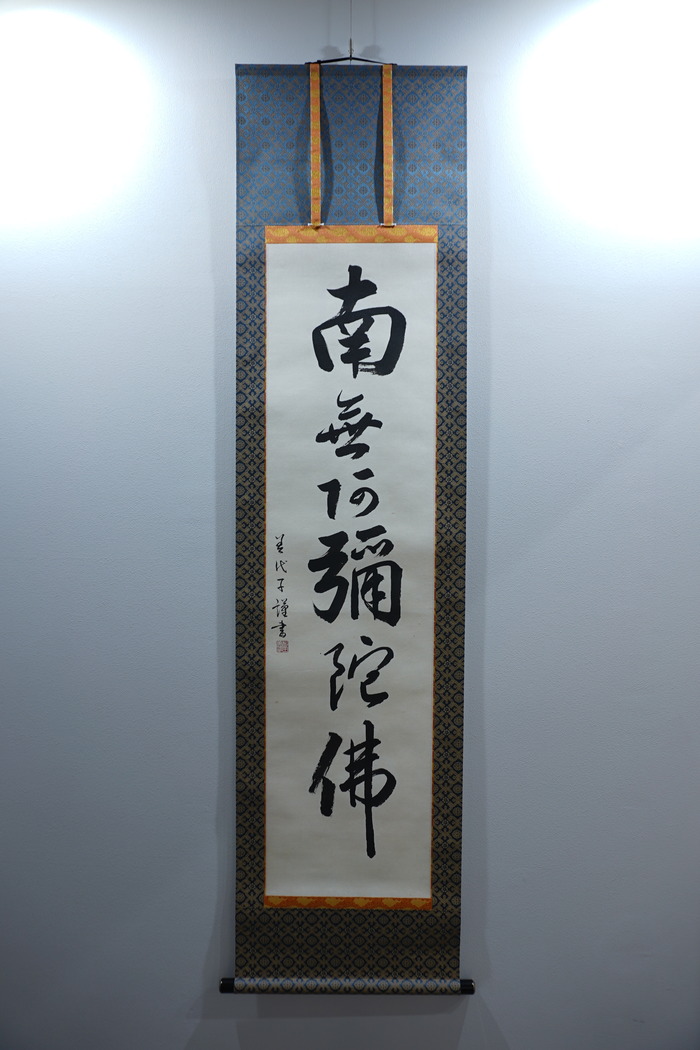 南無阿彌陀佛
美代子謹書